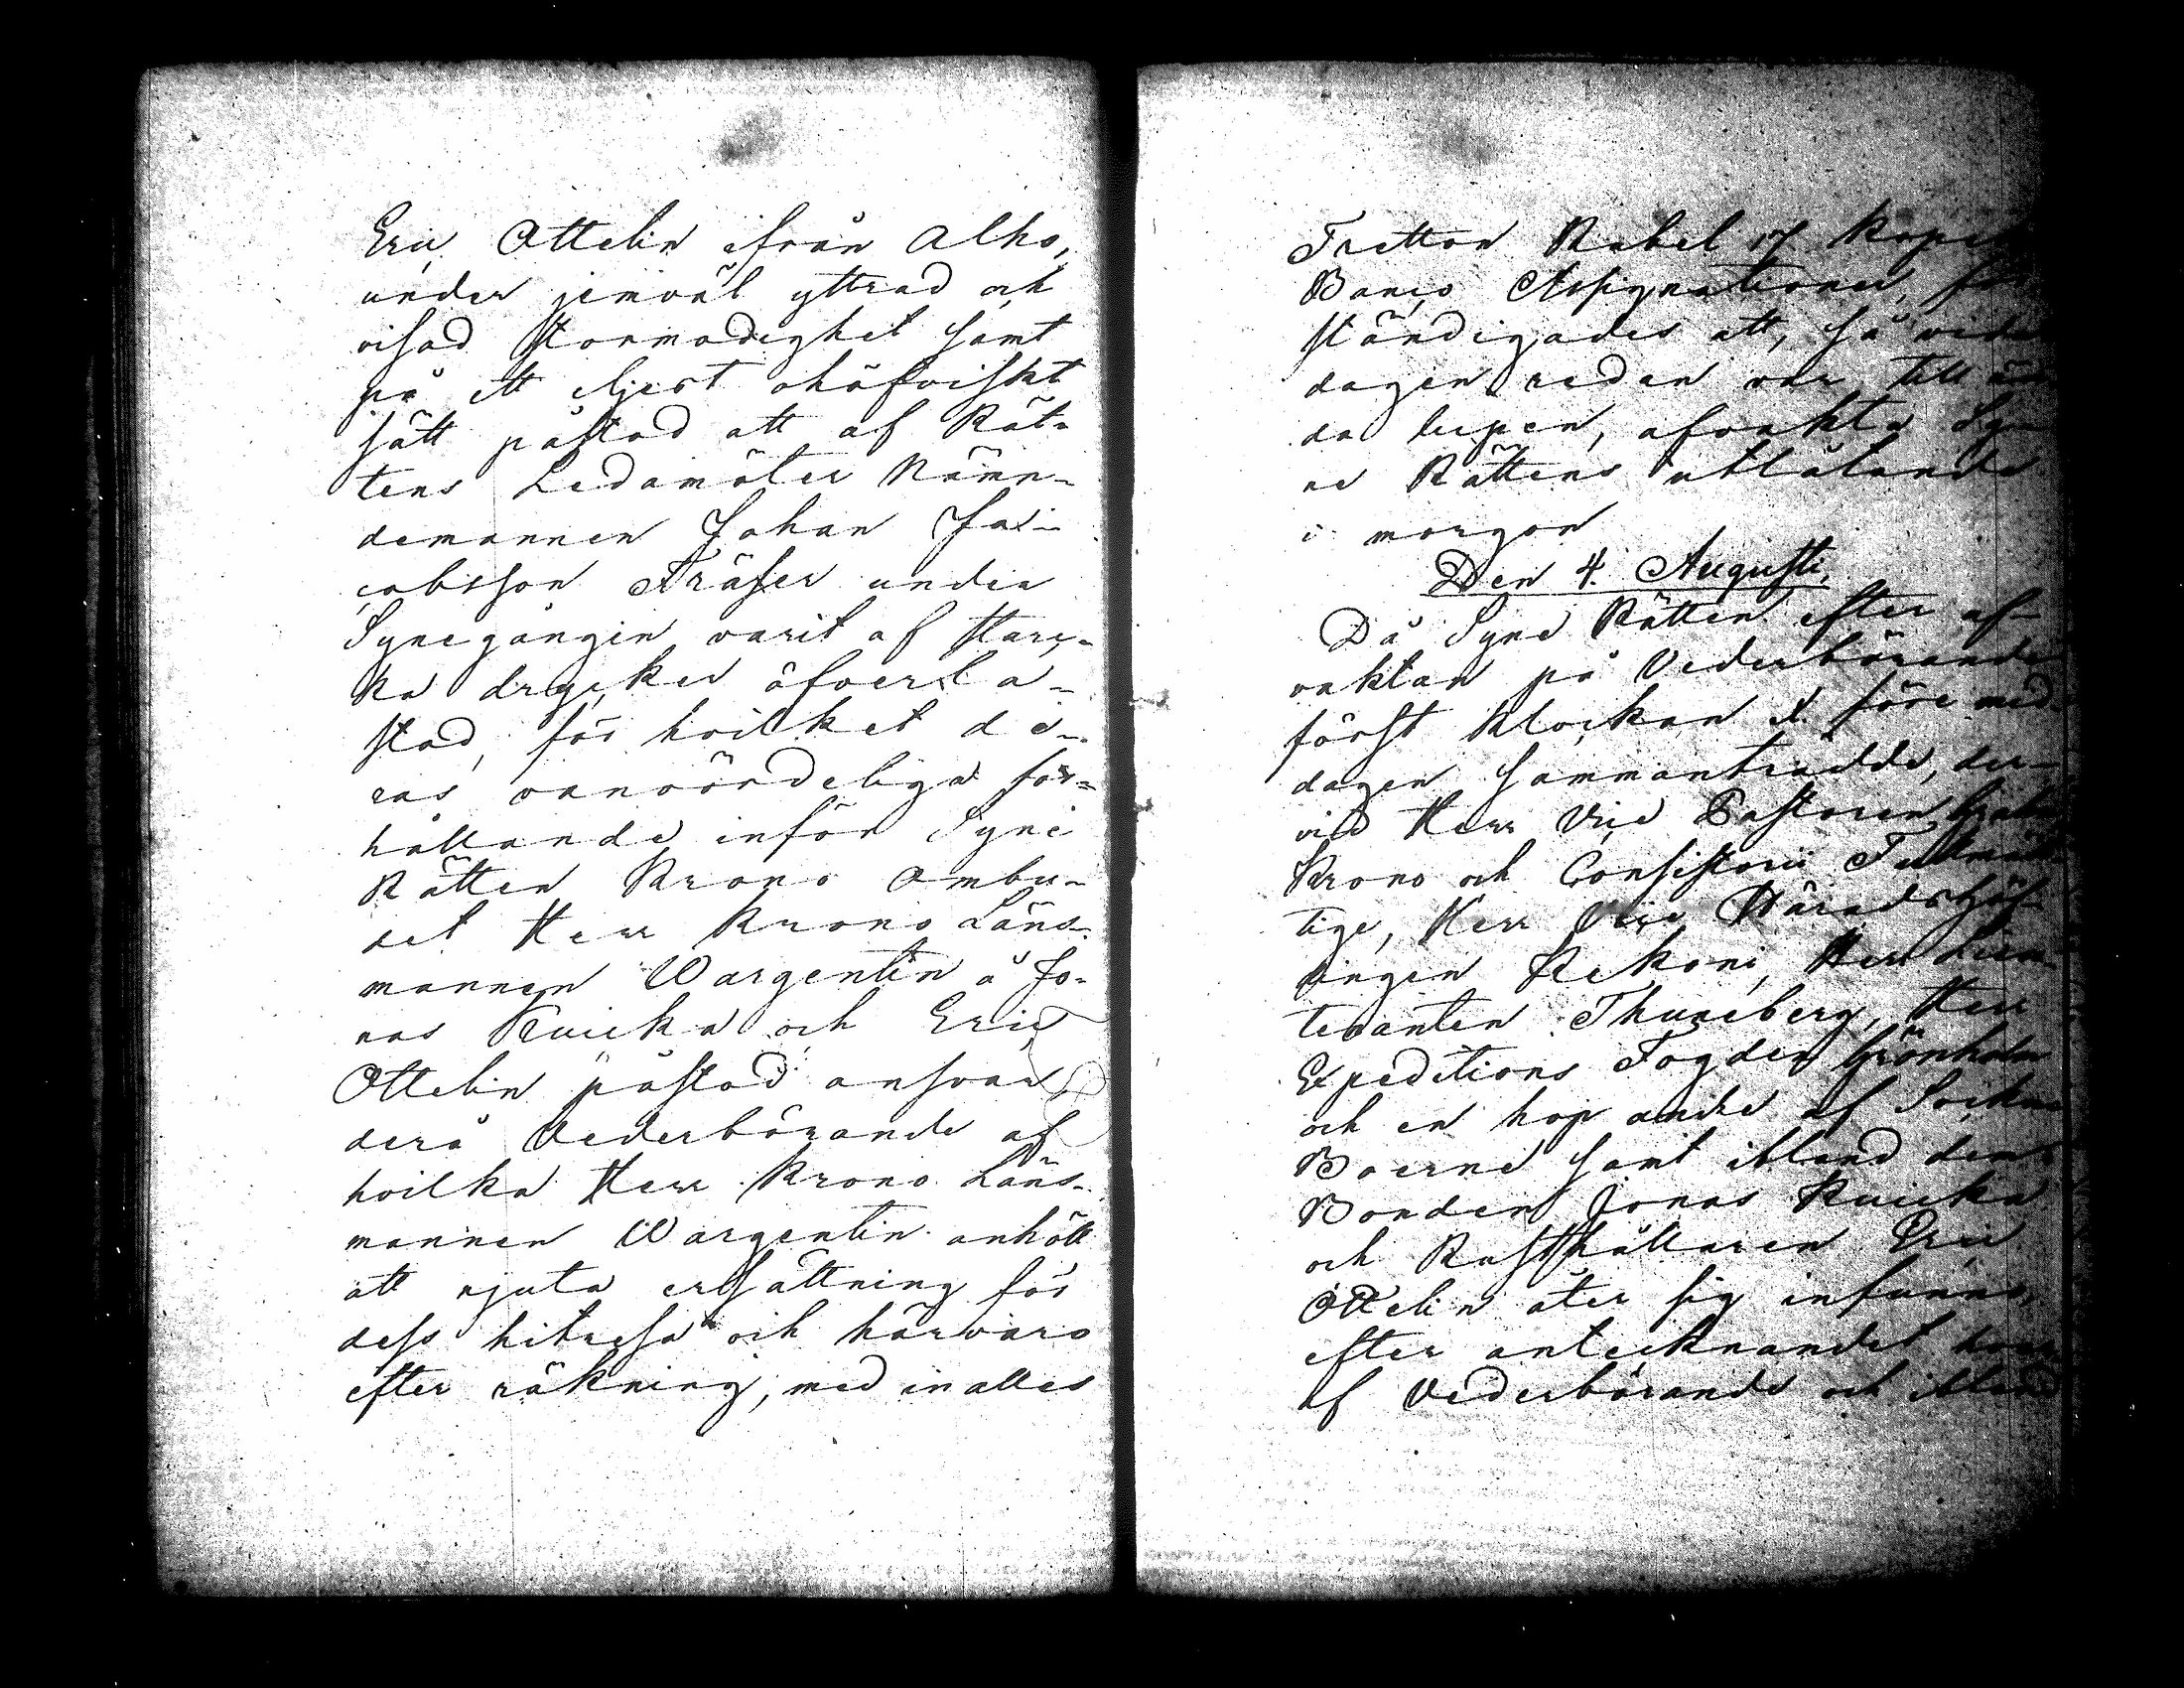 Eric Ottelin ifrån Alho,
under jemväl yttrad och
visad stormodighet samt
på ett eljest ohöfviskt
sätt påstod att af Rät-
tens Ledamöter Nämn-
demannen Johan Ja-
cobsson Träser under
Synegången varit af star-
ka drycker öfverla-
stad, för hvilket de-
ras vanvördeliga för-
hållande inför Syne
Rätten Krono Ombu-
det Herr Krono Läns-
mannen Wargentin å Jo-
nas Kuicka och Eric
Ottelin påstod ansvar
derå Vederbörande af
hvilka Herr Krono Läns-
mannen Wargentin anhöll
att njuta ersättning för
dess hitresa och härwaro
efter räkning, med inalles
Tretton Rubel 17 Kopek
Banco Assignationer, för
ständigades att, så vida
dagen redan var till än
da lupen, afvakta Sy
ne Rättens utlåtande
i morgon
Den 4. Augusti.
Då Syne Rätten efter af-
vaktan på Vederbörande
först klockan X. före med
dagen sammanträdde, der-
vid Herr Vice Pastoren
Krono och Consistorii Fullmäk
tige, Herr Vice Häradshöf-
dingen Rekoni, Herr Lieu
tenanten Thuneberg, Herr
Expeditions Fogden Grönholm
och en hop andre af Sockne
Boerne samt ibland dem
Bonden Jonas Kuicka
och Rusthållaren Eric
Ottelin åter sig infunno,
efter antecknandet
af Vederbörande och ibland